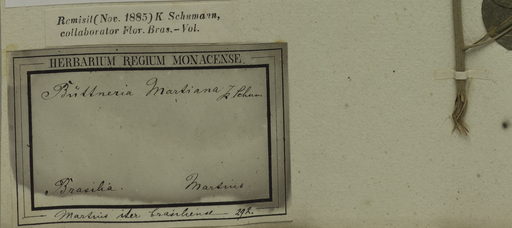 Remisit (Nov. 1885) K Schumann,
collaborator Flor. Bras.–Vol.
HERBARIUM REGIUM MONACENSE.
Büttneria Martiana K Schum
Brasilia. Martius
Martius iter brasiliense